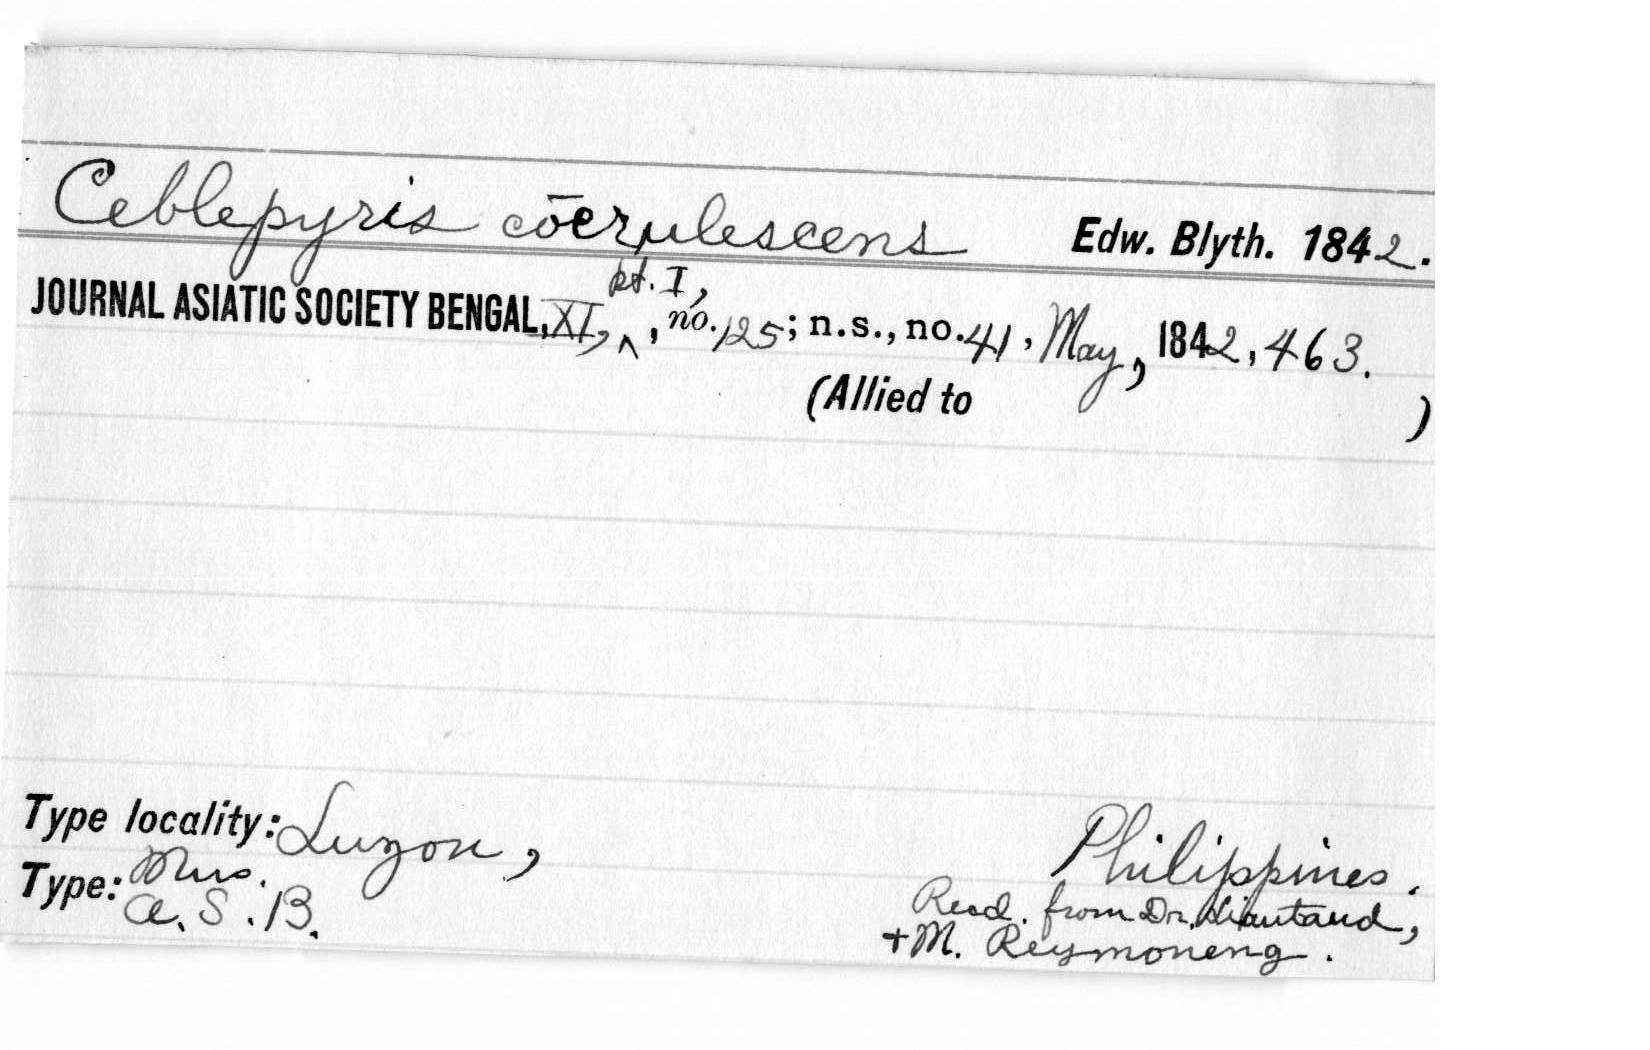 Ceblepyris cōerulescens Edw. Blyth. 1842.
JOURNAL ASIATIC SOCIETY BENGAL, XI, pt. I, , no. 125; n.s., no. 41, May, 1842, 463.
(Allied to )
Type locality: Luzon, Philippines.
Type: Mus. A. S. B.
Recd. from Dr. Liautaud,
+ M. Reymoneng.